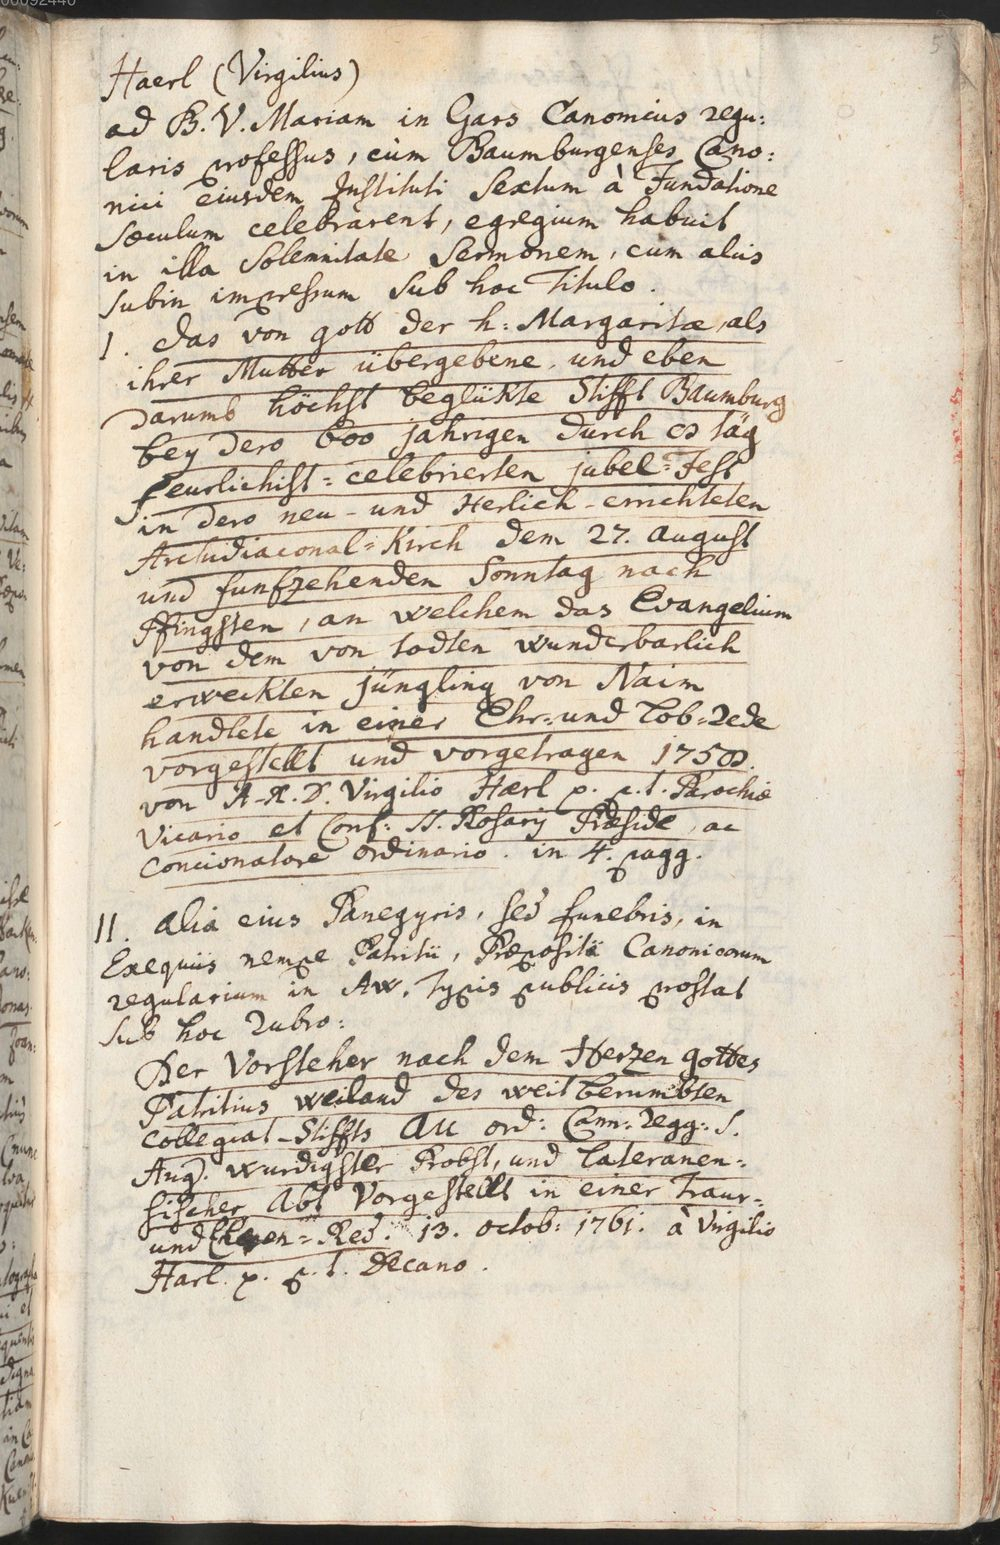 00092440
5
Haerl (Virgilius)
ad B. V. Mariam in Gars Canonicus regu:
laris professus, cùm Baumburgenses Cano:
nici eiusdem Instituti Sextum à Fundatione
Sæculum celebrarent, egregium habuit
in illa Solemnitate Sermonem, cum aliis
subin impressum sub hoc Titulo.
I. Das von gott der h: Margaritæ, als
ihrer Mutter übergebene, und eben
darumb höchst beglükte Stifft Baumburg
bey dero 600 jahrigen durch 8 täg
feurlichist=celebrierten jubel=Fest
in dero neu-und Herlich-errichteten
Archidiaconal=Kirch dem 27. august
und funfzehenden Sonntag nach
Pfingsten, an welchem das Evangelium
von dem von todten wunderbarlich
erweckten jüngling von Naim
handlete in einer Ehr-und Lob=Rede
vorgestellt und vorgetragen 1758.
von A. R. D. Virgilio Hærl p. t. Parochiæ
Vicario et Conf: SS. Rosarij Præside, ac
Concionatore ordinario. in 4. pagg.
II. alia eius Panegyris, sed funebris, in
Exequiis nempe Patritii, Præpositi Canonicorum
regularium in Aw, Typis publicis prostat
sub hoc Rubro:
Der Vorsteher nach dem Herzen gottes
Patritius weiland des weit berumbten
Collegiat-Stiffts Au ord: Cann: regg: S.
Aug. wurdigster Probst, und lateranen=
sischer Abt Vorgestellt in einer Traur=
und Red. 13. octob: 1761. à Virgilio
Harl. p. t. Decano.